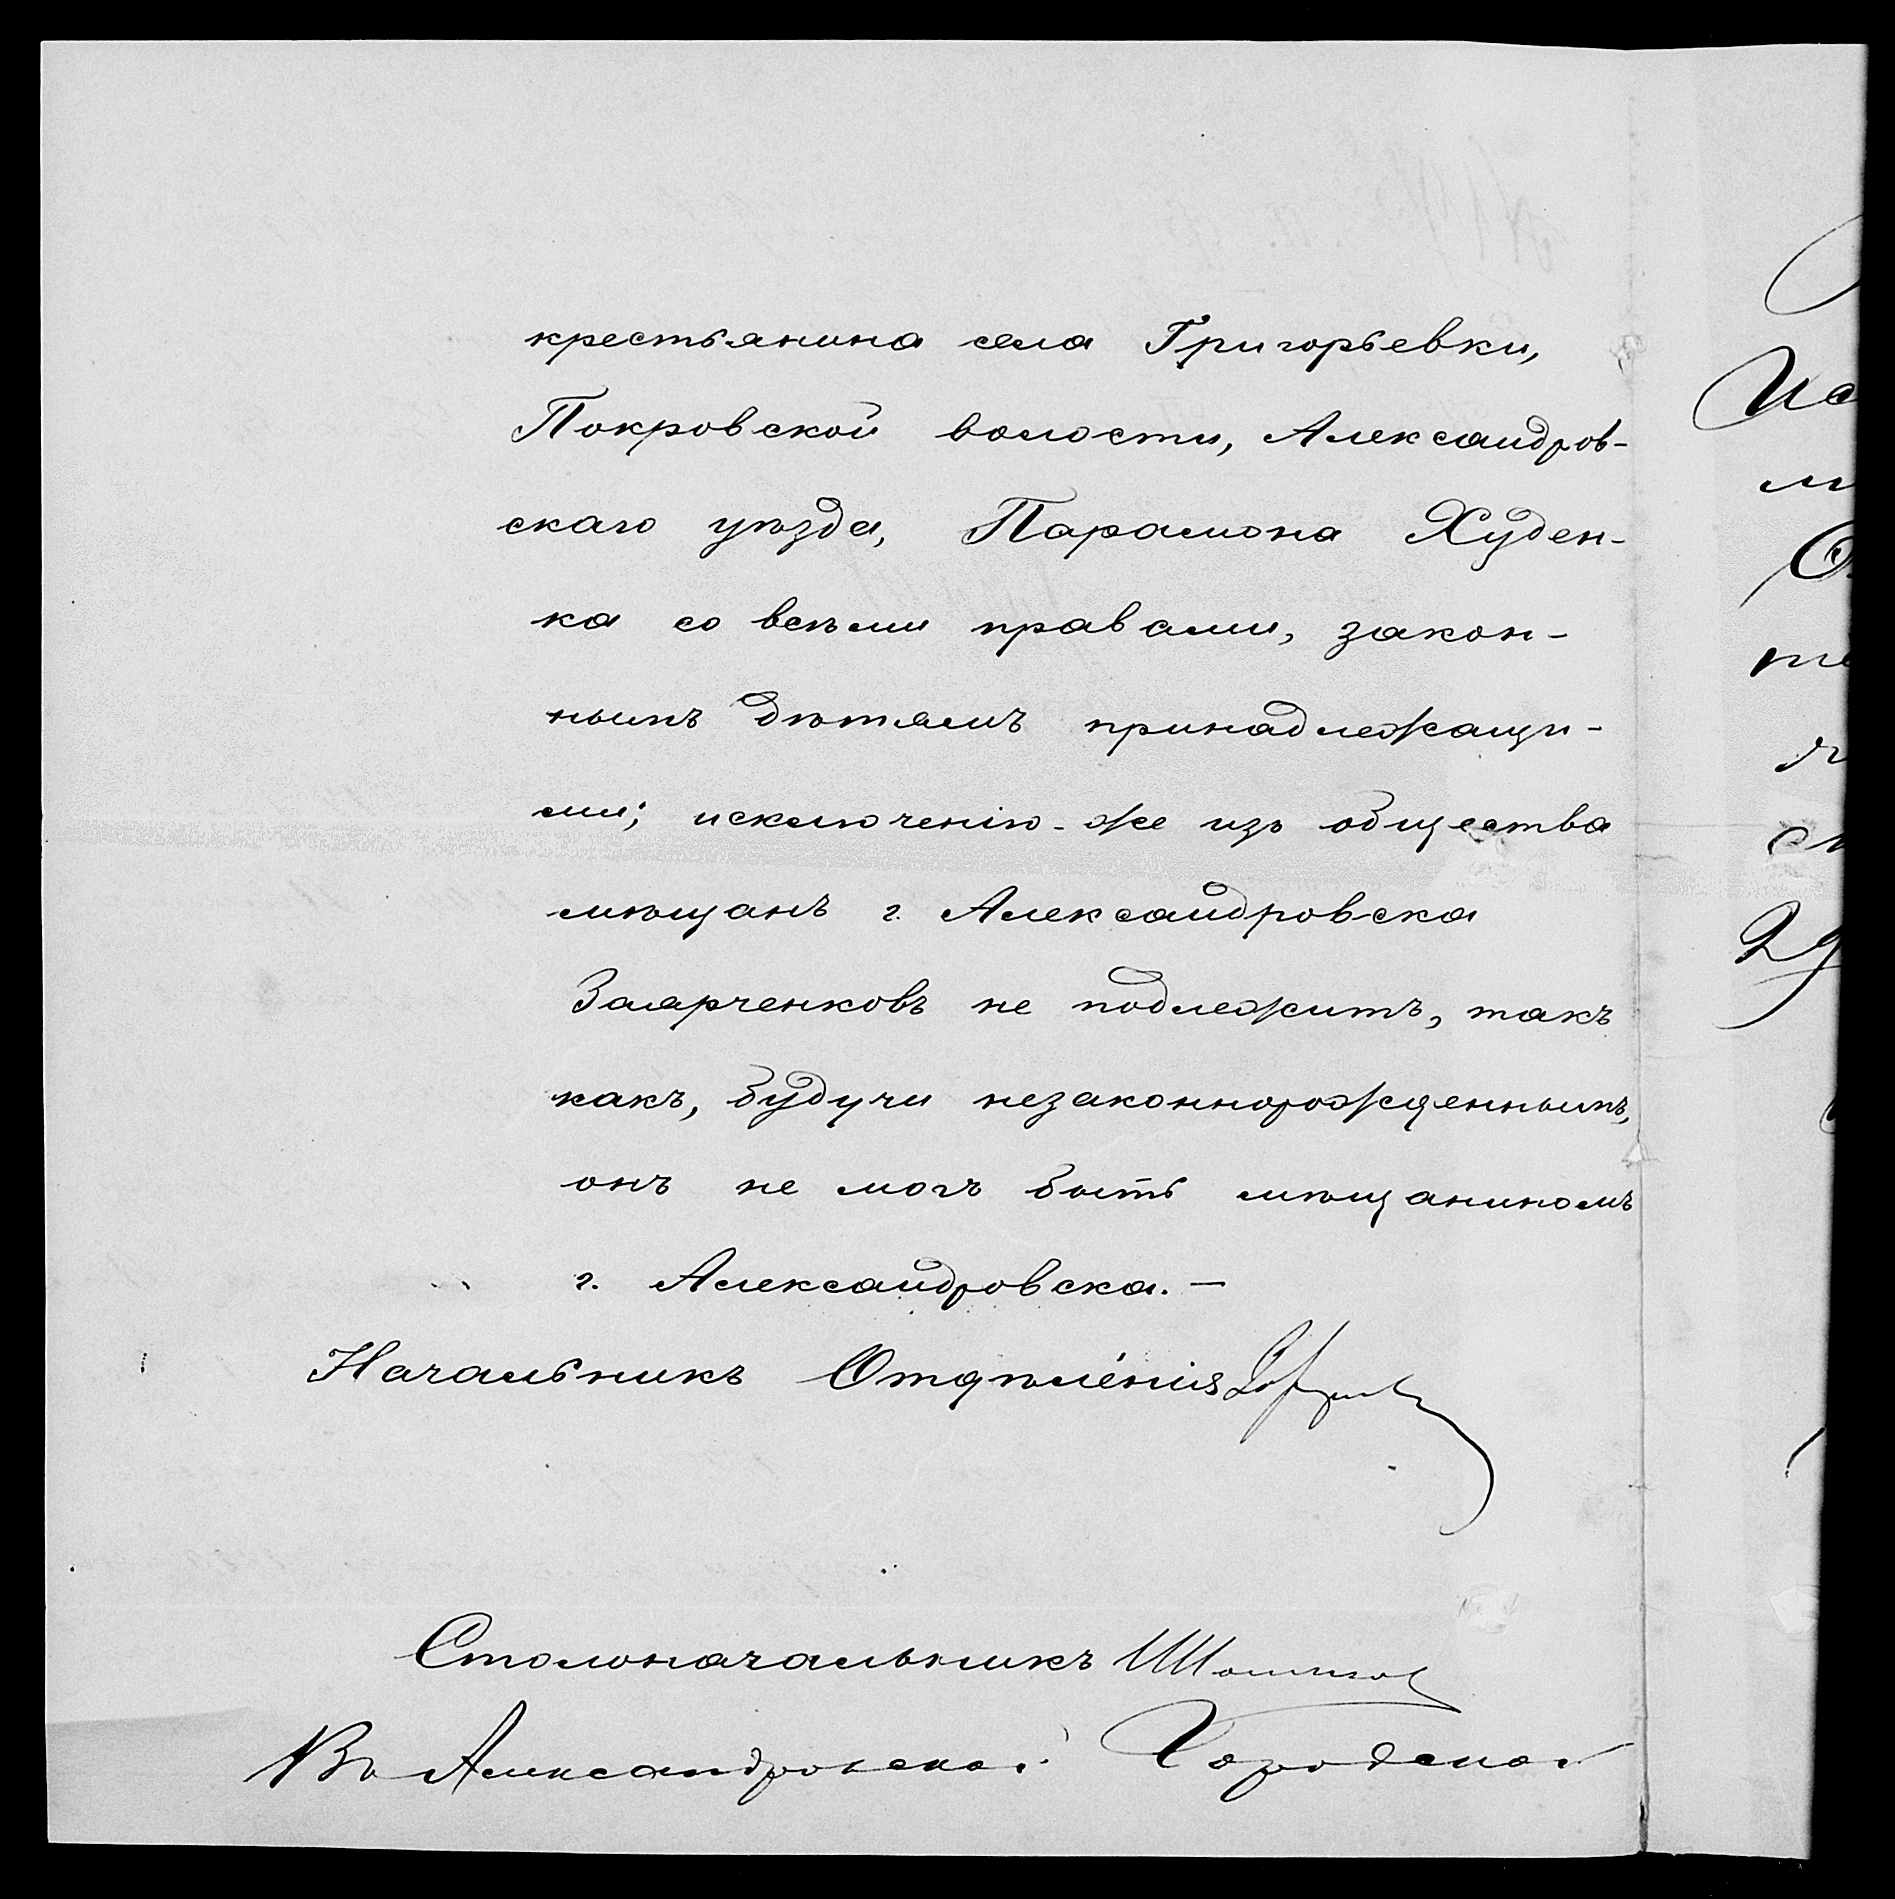 крестьянина села Григорьевки,
Покровской волости, Александров-
скаго уѣзда, Парамона Худен-
ка со всѣми правами, закон-
нымъ дѣтямъ принадлежащи-
ми; исключенію-же изъ общества
мѣщанъ г. Александровска
Заярченковъ не подлежитъ, такъ
какъ, будучи незаконнорожденнымъ,
онъ не могъ быть мѣщаниномъ
г. Александровска. —
Начальникъ Отдѣленія
Столоначальникъ
Въ Александровской Городской